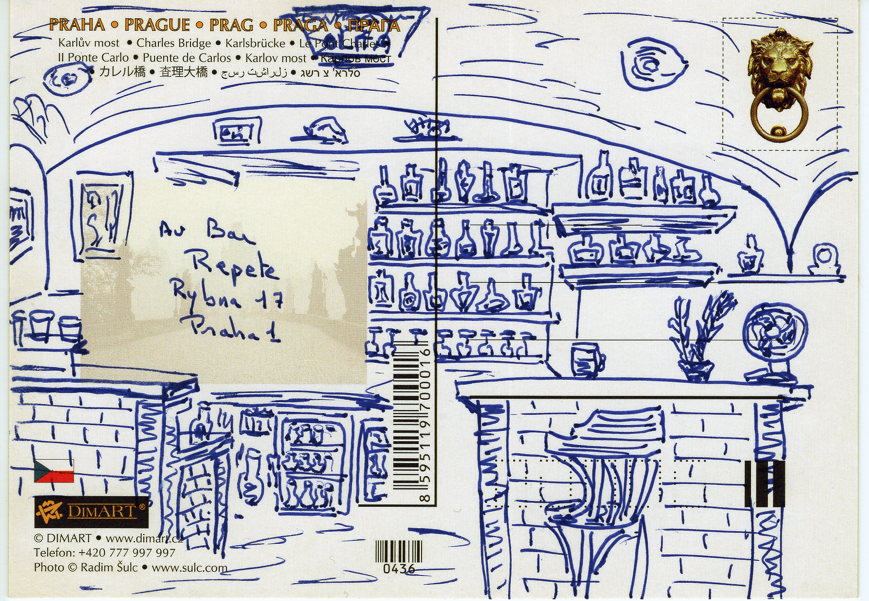 PRAHA • PRAGUE • PRAG • PRAGA • ПРАГА
Karlův most • Charles Bridge • Karlsbrücke • Le Pont Charles
Il Ponte Carlo • Puente de Carlos • Karlov most • Карлов мост
• カレル橋 • 査理大橋 •
Au Bar
Repete
Rybna 17
Praha 1
8595119700016
DIMART®
© DIMART • www.dimart.cz
Telefon: +420 777 997 997
Photo © Radim Šulc • www.sulc.com
0436